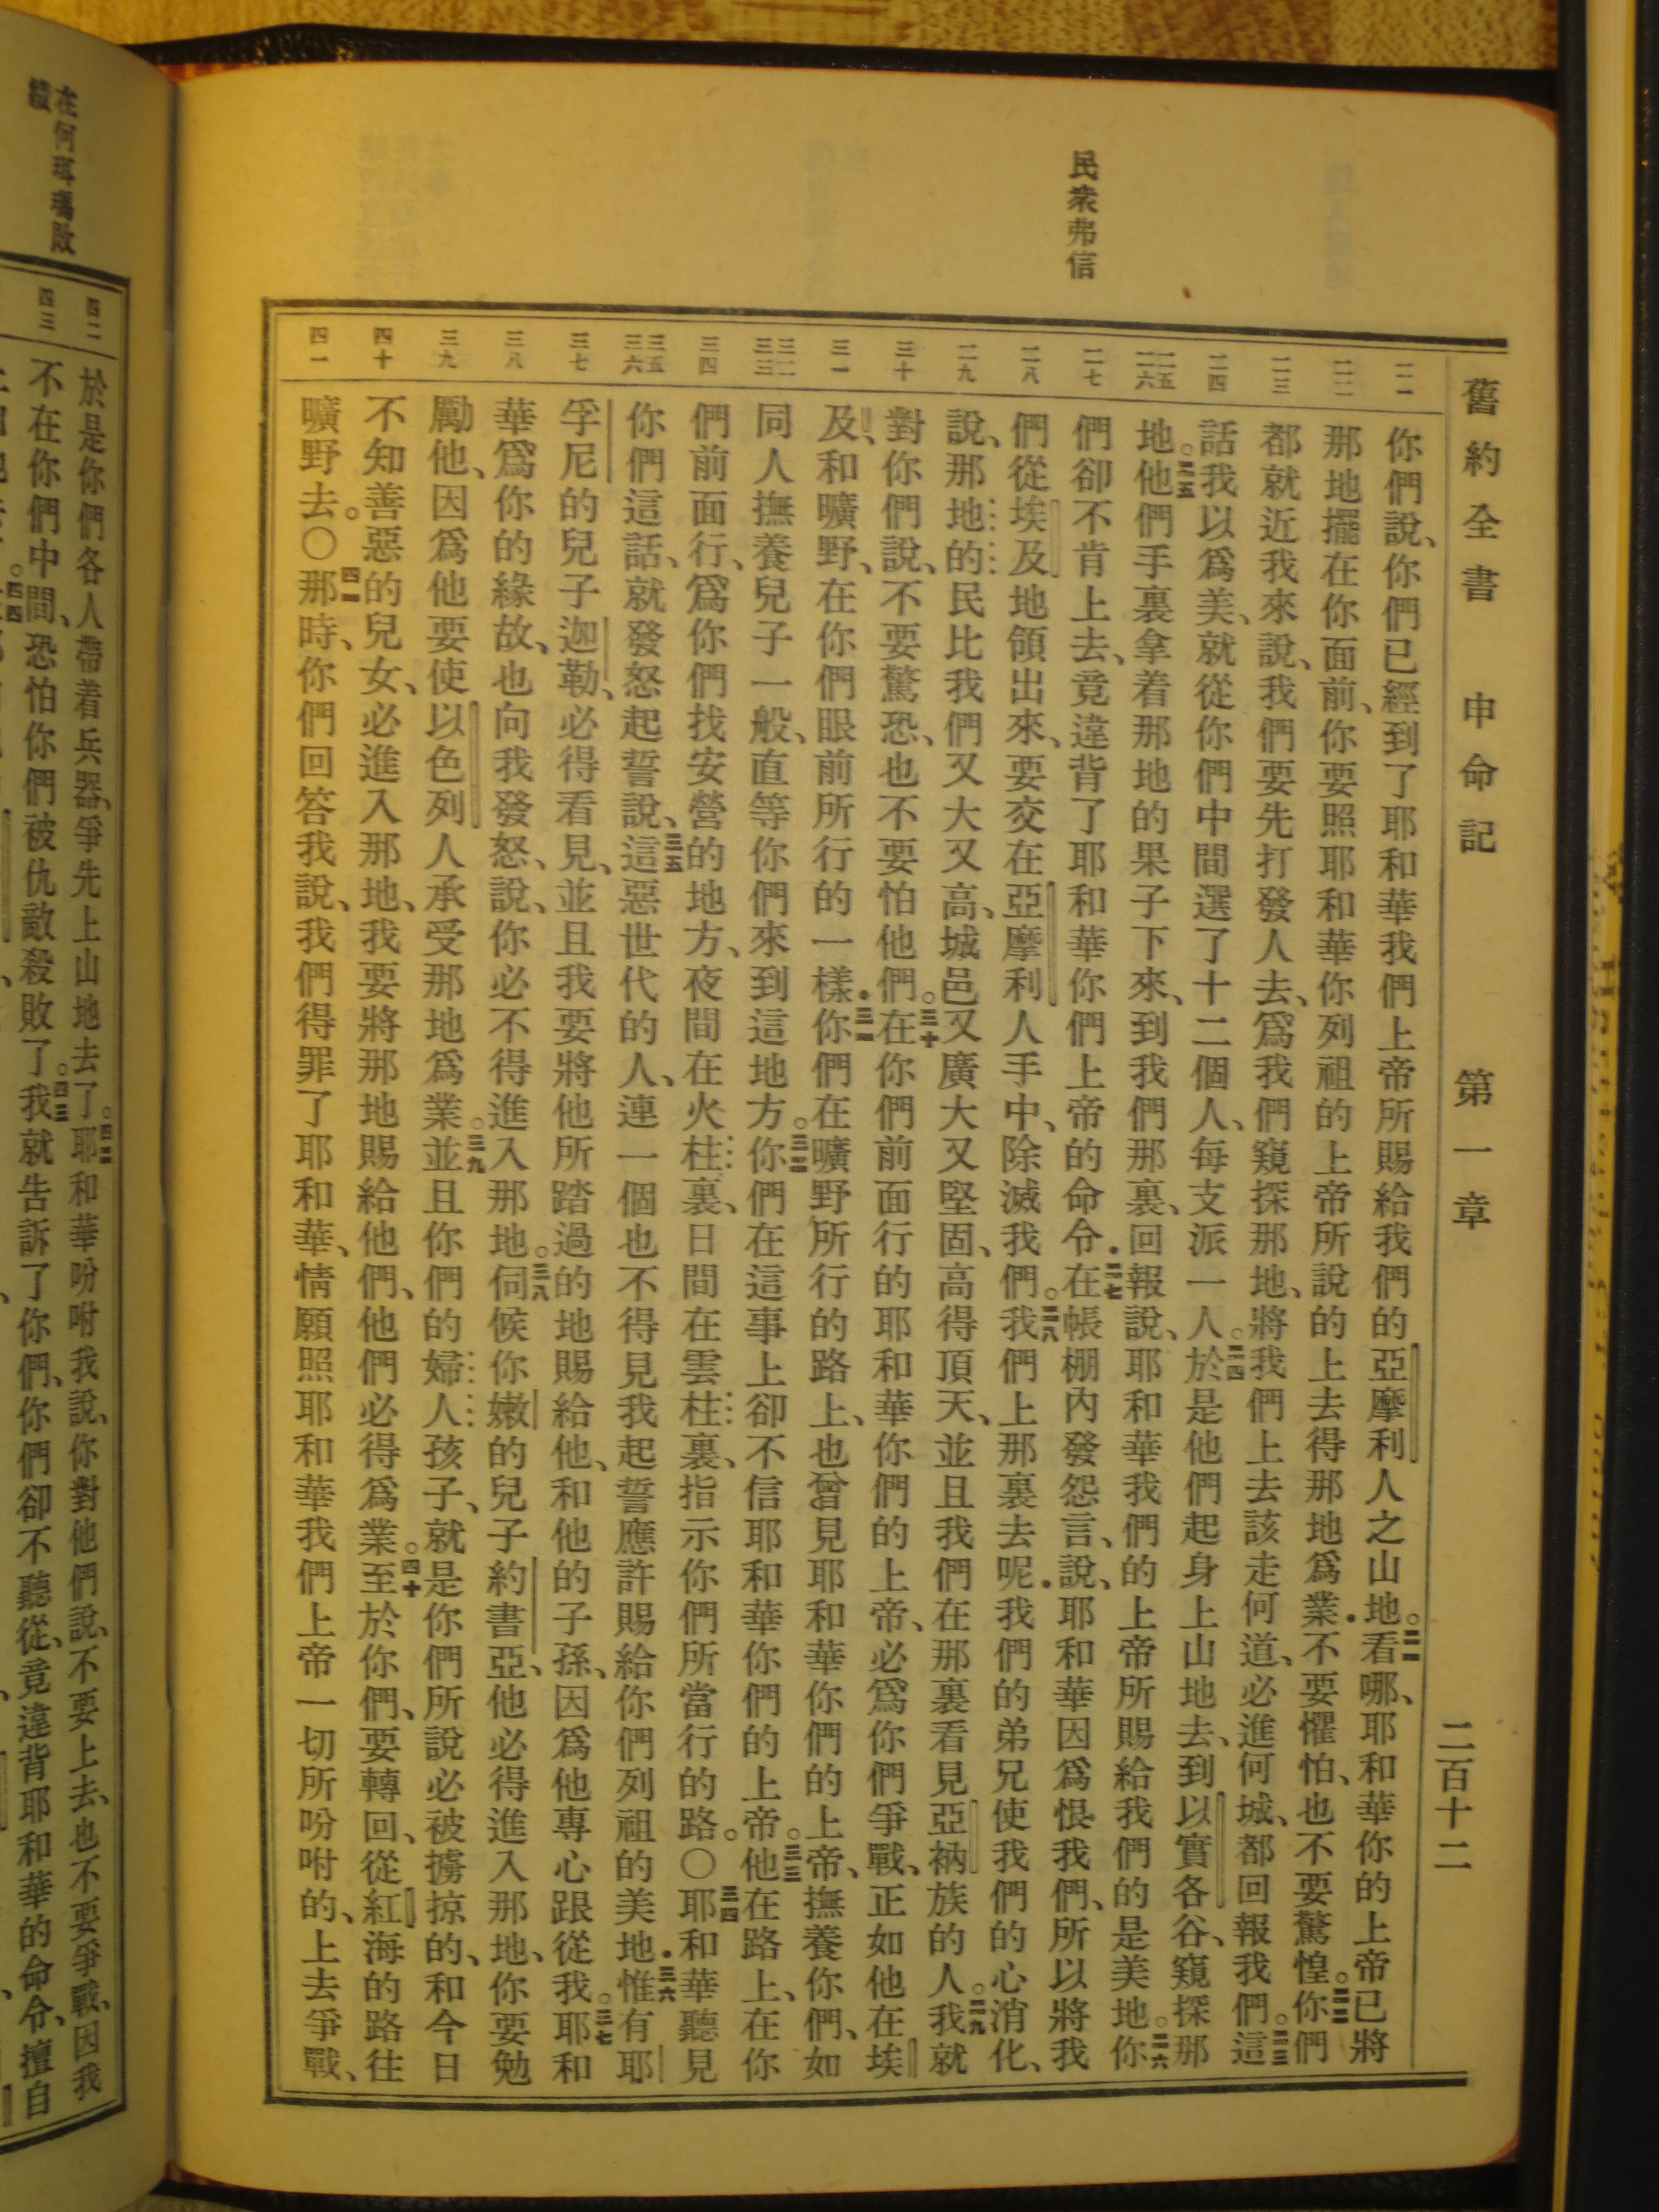 民衆弗信
舊約全書 申命記 第一章 二百十二
二一
二二
二三
二四
二五
二六
二七
二八
二九
三十
三一
三二
三三
三四
三五
三六
三七
三八
三九
四十
四一
你們說、你們已經到了耶和華我們上帝所賜給我們的亞摩利人之山地。二一看哪、耶和華你的上帝已將
那地擺在你面前、你要照耶和華你列祖的上帝所說的上去得那地爲業.不要懼怕、也不要驚惶。二二你們
都就近我來說、我們要先打發人去、爲我們窺探那地、將我們上去該走何道、必進何城、都回報我們。二三這
話我以爲美、就從你們中間選了十二個人、每支派一人。二四於是他們起身上山地去、到以實各谷、窺探那
地。二五他們手裏拿着那地的果子下來、到我們那裏、回報說、耶和華我們的上帝所賜給我們的是美地。二六你
們卻不肯上去、竟違背了耶和華你們上帝的命令.二七在帳棚內發怨言、說、耶和華因爲恨我們、所以將我
們從埃及地領出來、要交在亞摩利人手中、除滅我們。二八我們上那裏去呢.我們的弟兄使我們的心消化、
說、那地的民比我們又大又高、城邑又廣大又堅固、高得頂天、並且我們在那裏看見亞衲族的人。二九我就
對你們說、不要驚恐、也不要怕他們。三十在你們前面行的耶和華你們的上帝、必爲你們爭戰、正如他在埃
及、和曠野、在你們眼前所行的一樣.三一你們在曠野所行的路上、也曾見耶和華你們的上帝、撫養你們、如
同人撫養兒子一般、直等你們來到這地方。三二你們在這事上卻不信耶和華你們的上帝。三三他在路上、在你
們前面行、爲你們找安營的地方、夜間在火柱裏、日間在雲柱裏、指示你們所當行的路。〇三四耶和華聽見
你們這話、就發怒起誓說、三五這惡世代的人、連一個也不得見我起誓應許賜給你們列祖的美地.三六惟有耶
孚尼的兒子迦勒、必得看見、並且我要將他所踏過的地賜給他、和他的子孫、因爲他專心跟從我。三七耶和
華爲你的緣故、也向我發怒、說、你必不得進入那地。三八伺候你嫩的兒子約書亞、他必得進入那地、你要勉
勵他、因爲他要使以色列人承受那地爲業。三九並且你們的婦人孩子、就是你們所說必被擄掠的、和今日
不知善惡的兒女、必進入那地、我要將那地賜給他們、他們必得爲業。四十至於你們、要轉回、從紅海的路往
曠野去。〇四一那時、你們回答我說、我們得罪了耶和華、情願照耶和華我們上帝一切所吩咐的、上去爭戰、
在何珥瑪敗績
四二
四三
於是你們各人帶着兵器、爭先上山地去了。四二耶和華吩咐我說、你對他們說、不要上去、也不要爭戰、因我
不在你們中間、恐怕你們被仇敵殺敗了。四三我就告訴了你們、你們卻不聽從、竟違背耶和華的命令、擅自